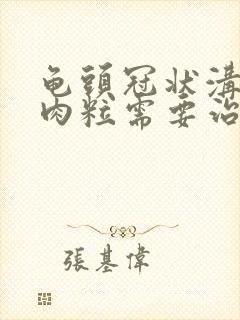 龟頭冠狀溝
肉粒需要治
張基偉